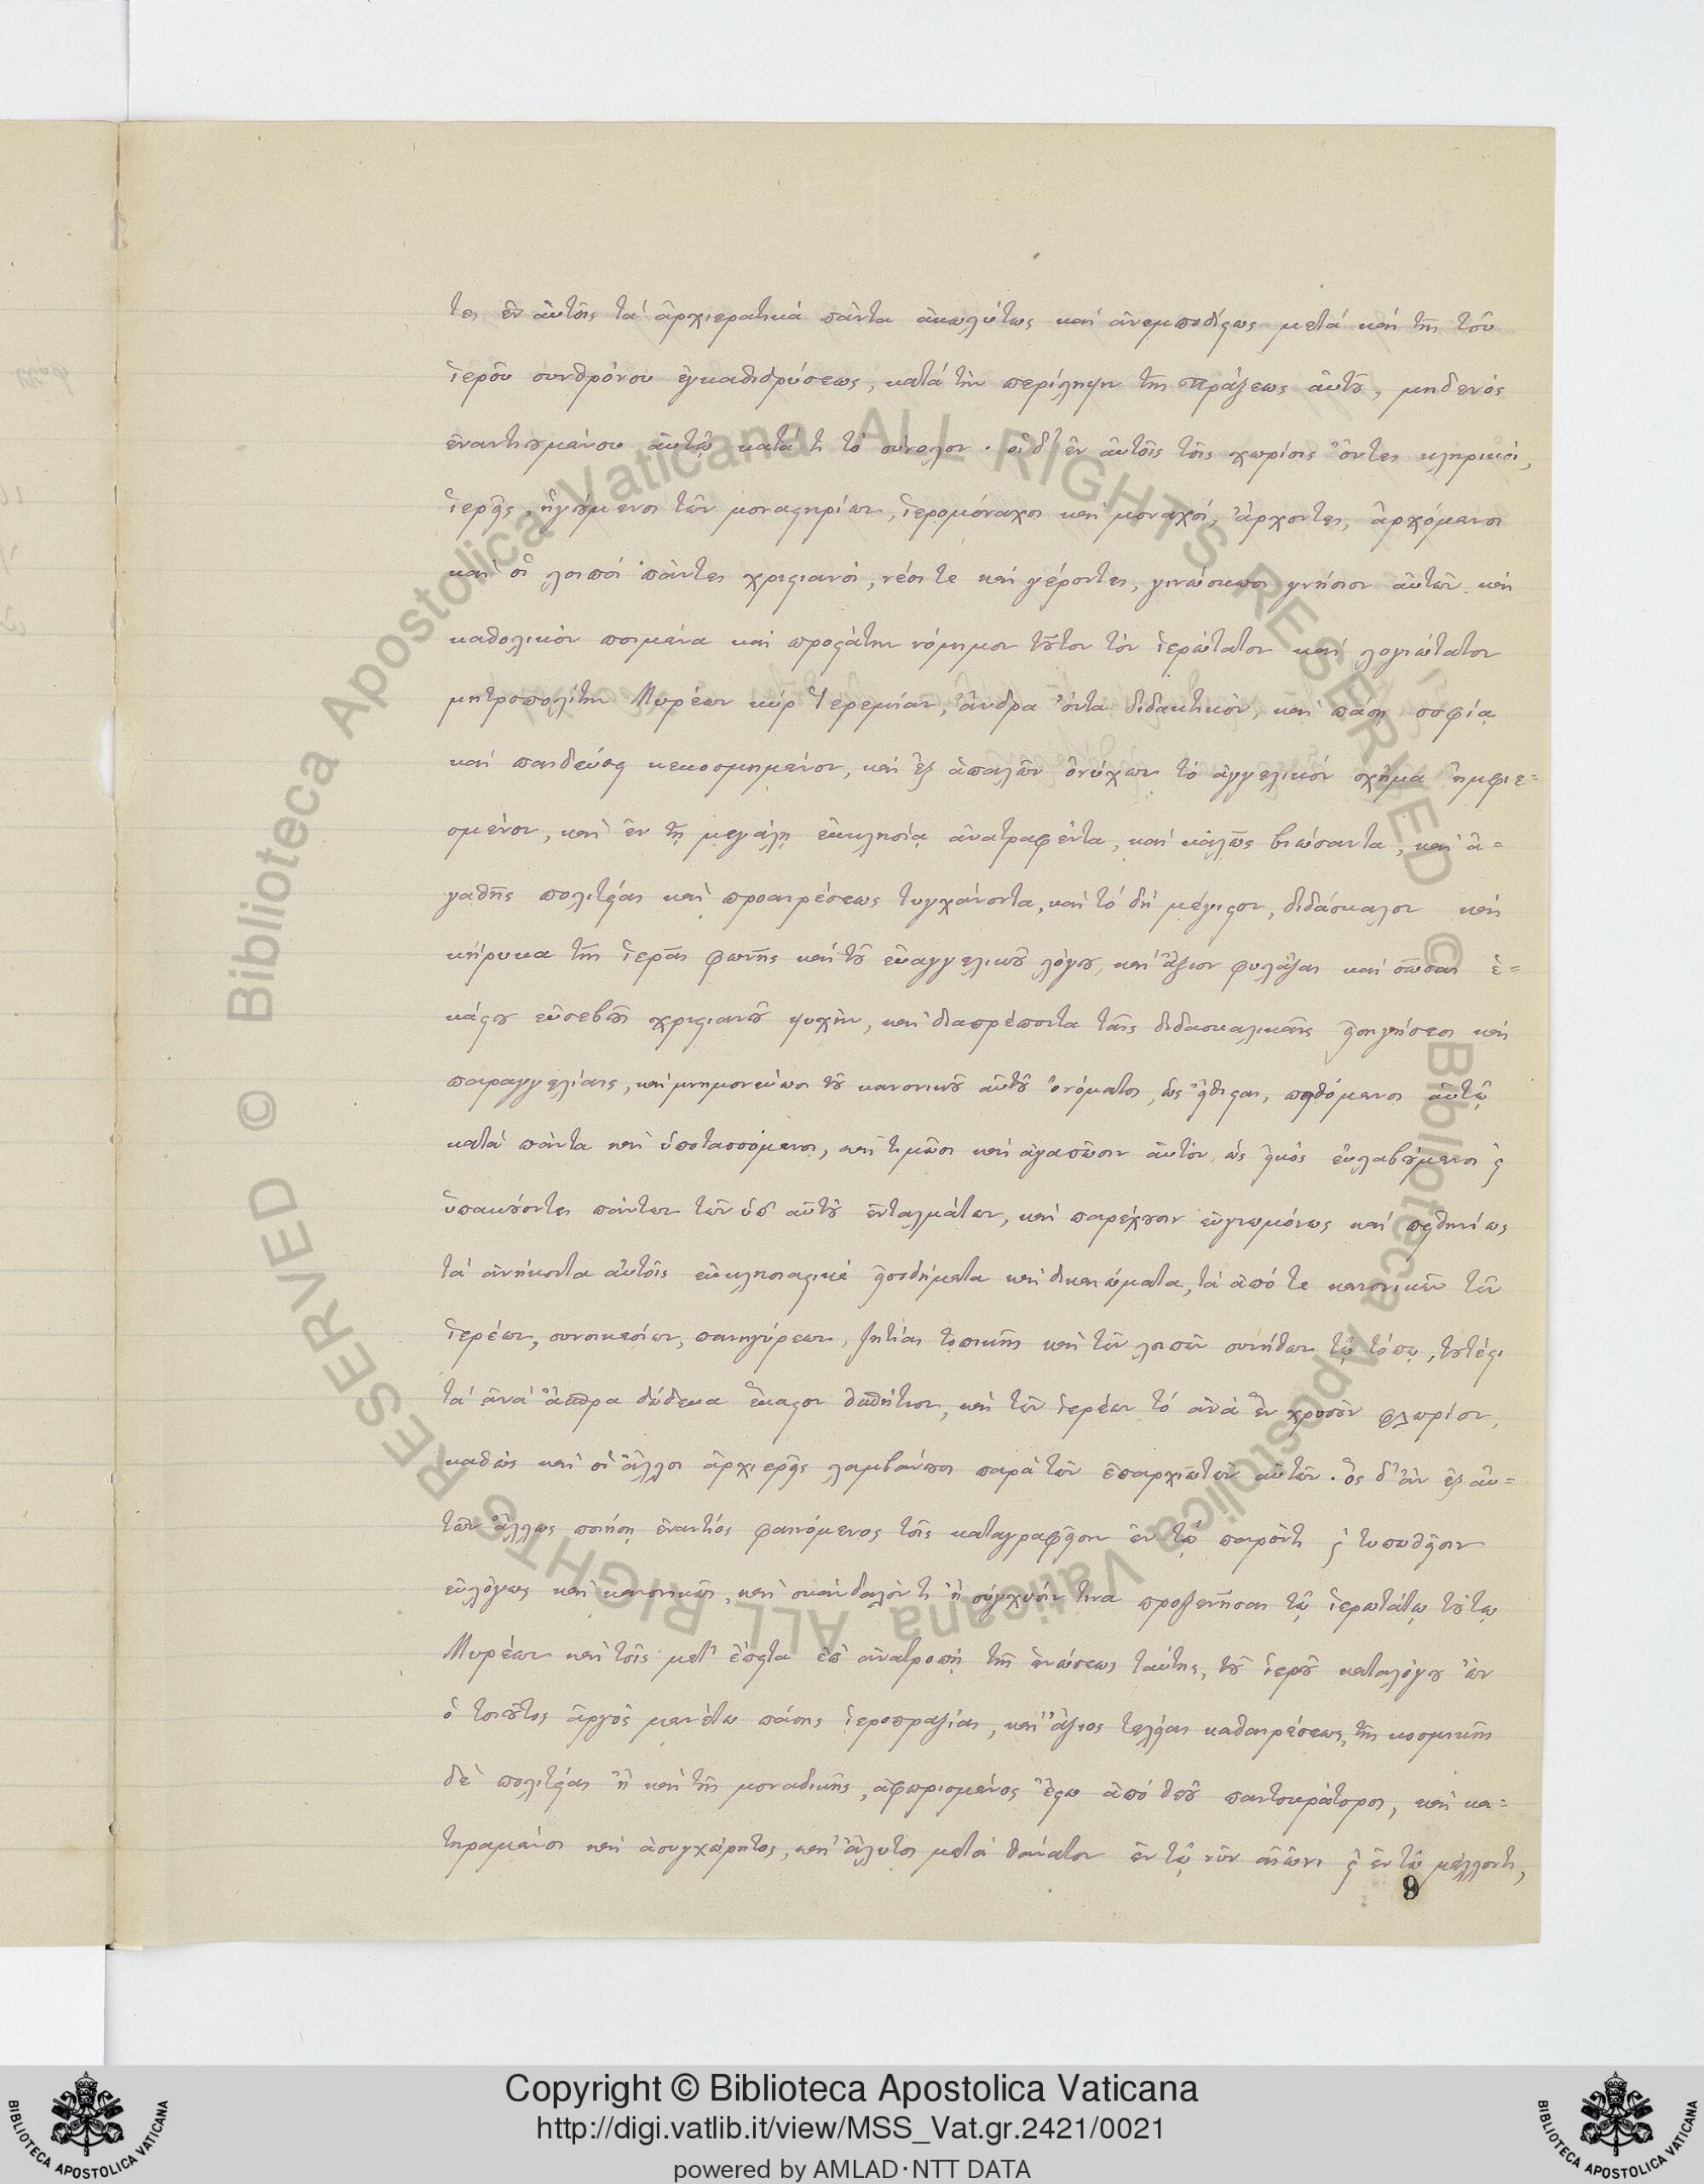 τει ἐν αὐτοῖς τὰ ἀρχιερατικὰ πάντα ἀκωλύτως καὶ ἀνεμποδίστως μετὰ καὶ τῆς τοῦ
ἱεροῦ συνθρόνου ἐγκαθιδρύσεως, κατὰ τὴν περίληψιν τῆς πράξεως αὐτοῦ, μηδενὸς
ἐναντιουμένου αὐτῷ κατά τι τὸ σύνολον. οἱ δ' ἐν αὐτοῖς τοῖς χωρίοις ὄντες κληρικοί,
ἱερεῖς, ἡγούμενοι τῶν μοναστηρίων, ἱερομόναχοι καὶ μοναχοί, ἄρχοντες, ἀρχόμενοι
καὶ οἱ λοιποὶ πάντες χριστιανοί, νέοι τε καὶ γέροντες, γινώσκωσι γνήσιον αὐτῶν καὶ
καθολικὸν ποιμένα καὶ προστάτην νόμιμον τοῦτον τὸν ἱερώτατον καὶ λογιώτατον
μητροπολίτην Μυρέων κύρ Ἱερεμίαν, ἄνδρα ὄντα διδακτικόν, καὶ πάσῃ σοφίᾳ
καὶ παιδεύσει κεκοσμημένον, καὶ ἐξ ἁπαλῶν ὀνύχων τὸ ἀγγελικὸν σχῆμα ἠμφιε=
σμένον, καὶ ἐν τῇ μεγάλῃ ἐκκλησίᾳ ἀνατραφέντα, καὶ καλῶς βιώσαντα, καὶ ἀ=
γαθῆς πολιτείας καὶ προαιρέσεως τυγχάνοντα, καὶ τὸ δὴ μέγιστον, διδάσκαλον καὶ
κήρυκα τῆς ἱερᾶς φωνῆς καὶ τοῦ εὐαγγελικοῦ λόγου, καὶ ἄξιον φυλάξαι καὶ σῶσαι ἑ=
κάστου εὐσεβοῦς χριστιανοῦ ψυχήν, καὶ διαπρέποντα ταῖς διδασκαλικαῖς εἰσηγήσεσι καὶ
παραγγελίαις, καὶ μνημονεύωσι τοῦ κανονικοῦ αὐτοῦ ὀνόματος, ὡς εἴθισται, πειθόμενοι αὐτῷ
κατὰ πάντα καὶ ὑποτασσόμενοι, καὶ τιμῶσι καὶ ἀγαπῶσιν αὐτόν, ὡς εἰκός, εὐλαβούμενοι ϗ
ὑπακούοντες πάντων τῶν ὑπ' αὐτοῦ ἐνταλμάτων, καὶ παρέχουσιν εὐγνωμόνως καὶ πειθηνίως
τὰ ἀνήκοντα αὐτοῖς ἐκκλησιαστικὰ εἰσοδήματα καὶ δικαιώματα, τὰ ἀπό τε κανονικῶν τῶν
ἱερέων, συνοικεσίων, πανηγύρεων, ζητείας τοπικῆς καὶ τῶν λοιπῶν συνήθων τῷ τόπῳ, τουτέστι
τὰ ἀνὰ ἄσπρα δώδεκα ἕκαστον ὁσπήτιον, καὶ τῶν ἱερέων τὸ ἀνὰ ἓν χρυσὸν φλωρίον,
καθὼς καὶ οἱ ἄλλοι ἀρχιερεῖς λαμβάνουσι παρὰ τῶν ἐπαρχιωτῶν αὐτῶν. ὃς δ' ἂν ἐξ αὐ=
τῶν ἄλλως ποιήσῃ ἐναντίος φαινόμενος τοῖς καταγραφεῖσιν ἐν τῷ παρόντι ϗ τυπωθεῖσιν
εὐλόγως καὶ κανονικῶς, καὶ σκάνδαλόν τι ἢ σύγχυσίν τινα προξενῆσαι τῷ ἱερωτάτῳ τούτῳ
Μυρέων καὶ τοῖς μετ' ἔπειτα ἐπ' ἀνατροπῇ τῆς ἑνώσεως ταύτης, τοῦ ἱεροῦ καταλόγου ὢν
ὁ τοιοῦτος ἀργὸς μενέτω πάσης ἱεροπραξίας, καὶ ἄξιος τελείας καθαιρέσεως, τῆς κοσμικῆς
δὲ πολιτείας ἢ καὶ τῆς μοναδικῆς, ἀφωρισμένος ἔστω ἀπὸ θεοῦ παντοκράτορος, καὶ κα=
τηραμένος καὶ ἀσυγχώρητος, καὶ ἄλυτος μετὰ θάνατον ἐν τῷ νῦν αἰῶνι ϗ ἐν τῷ μέλλοντι,
9
© Biblioteca Apostolica Vaticana ALL RIGHTS RESERVED © Biblioteca Apostolica Vaticana ALL RIGHTS RESERVED
BIBLIOTECA APOSTOLICA VATICANA
Copyright © Biblioteca Apostolica Vaticana
http://digi.vatlib.it/view/MSS_Vat.gr.2421/0021
powered by AMLAD·NTT DATA
BIBLIOTECA APOSTOLICA VATICANA